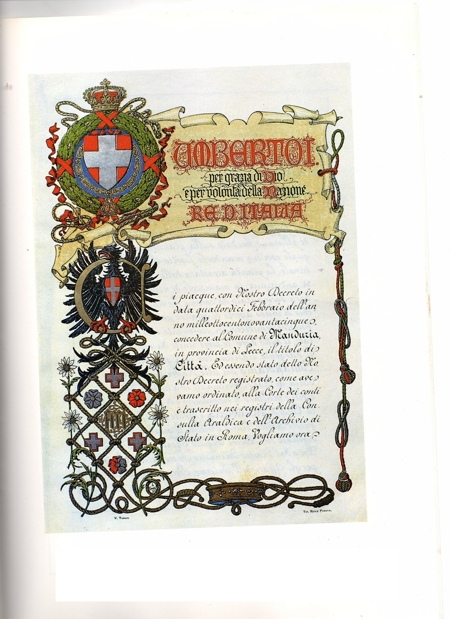 UMBERTO I.
per grazia di Dio
e per volontà della Nazione
RE D'ITALIA
Ci piacque, con Nostro Decreto in
data quattordici Febbraio dell'an-
no milleottocentonovantacinque,
concedere al Comune di Manduria,
in provincia di Lecce, il titolo di
Città. Ed essendo stato detto No-
stro Decreto registrato, come ave-
vamo ordinato, alla Corte dei conti
e trascritto nei registri della Con-
sulta Araldica e dell'Archivio di
Stato in Roma, Vogliamo ora